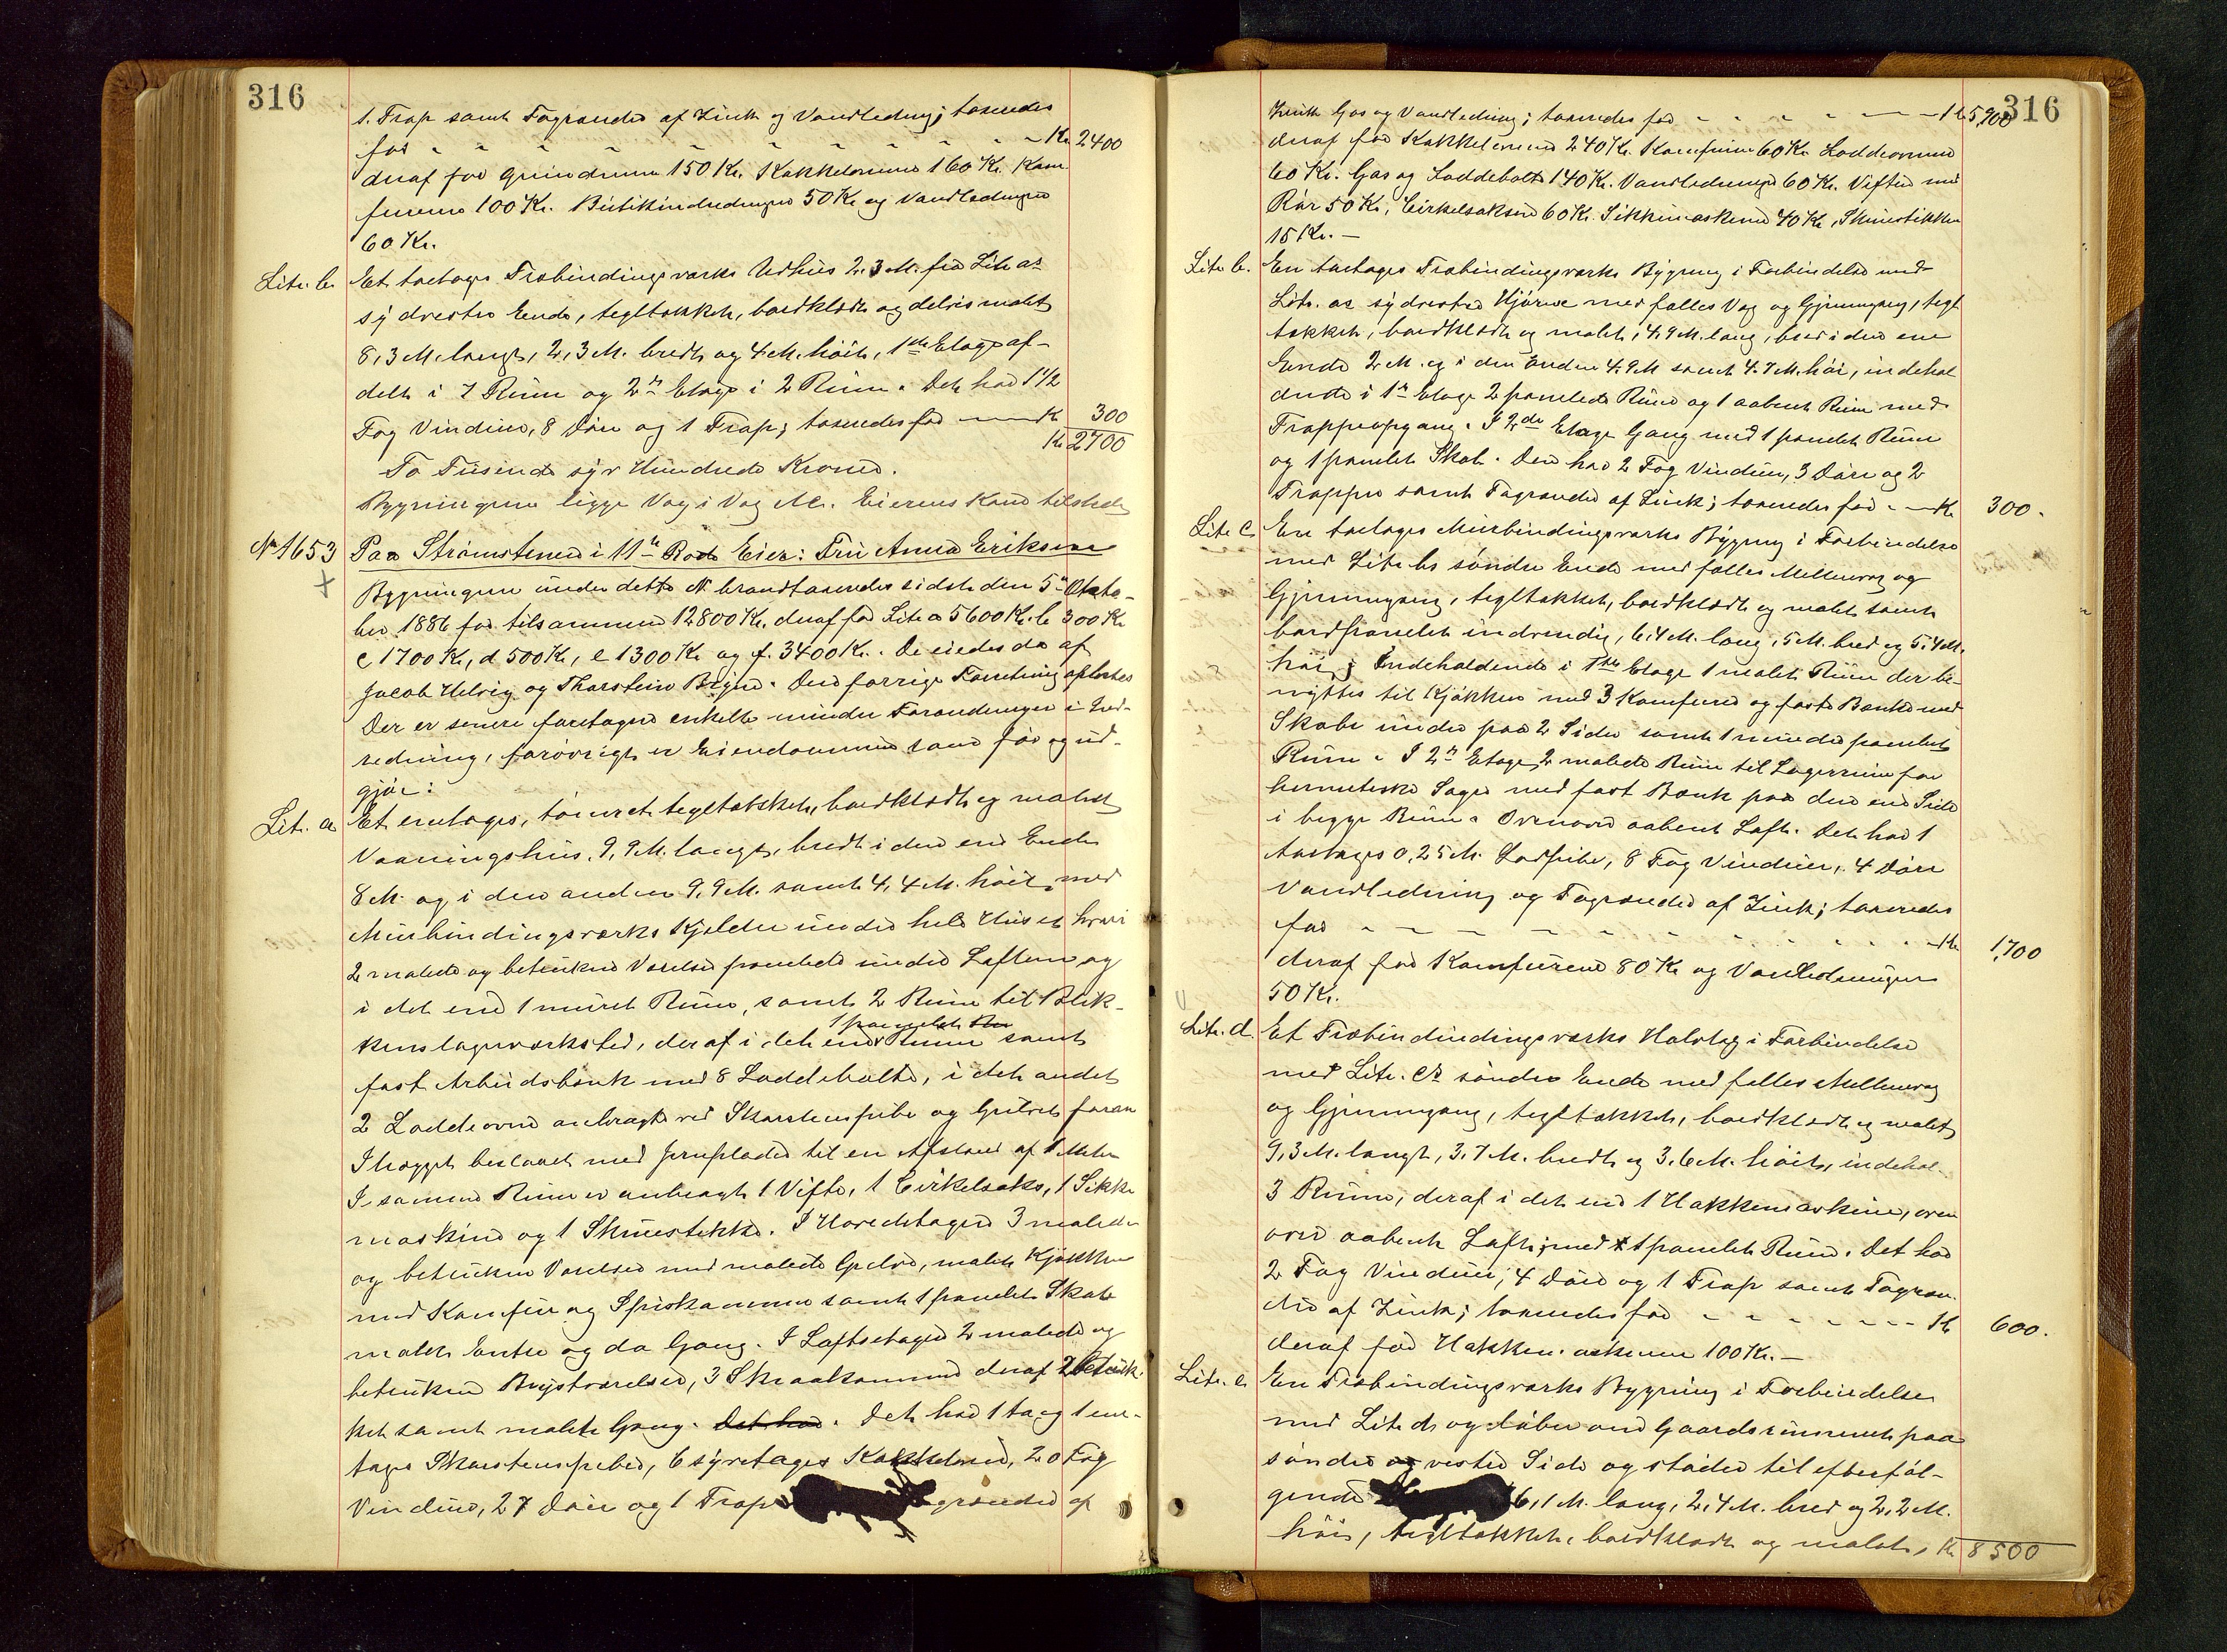 316
1. Trap samt Tagrender af Zink og Vandledning; taxeredes
for - - - - - - - - - Kr. 2400
deraf for Gruindmuren 150 Kr. Kakkelovnene 160 Kr. Kom-
furerne 100 Kr. Butikindredningen 50 Kr. og Vandledningen
60 Kr.
Litr. b. Et toetages Træbindingsværks Udhus 2.3 M. fra Litr. a's
sydvestre Ende, tegltækket, bordklædt og delvis malet
8,3 M. langt, 2,3 M. bredt og 4 M. høit, 1ste Etage af-
delt i 7 Rum og 2den Etage i 2 Rum. Det har 1 1/2
Fag Vinduer, 8 Døre og 1 Trap; taxeredes for — Kr 300
Kr. 2700
To Tusinde syv Hundrede Kroner.
Bygningerne ligge Væg i Væg M. Eierens Kone tilstede
No 1653 Paa Strømstenen i 11te Rode Eier: Fru Anna Eriksen
Bygningerne under dette No brandtaxeredes sidst den 5te Okto-
ber 1886 for tilsammen 12800 Kr. deraf for Litr a 5600 Kr. b 300 Kr
c 1700 Kr, d 500 Kr, e 1300 Kr og f. 3400 Kr. De eiedes da af
Jacob Helvig og Thorstein Bryne. Den forrige Forretning oplæstes
Der er senere foretaget enkelte mindre Forandringer i Ind-
redning, forøvrigt er Eiendommen som før og ud-
gjør:
Litr. a Et enetages, tømret tegltækket, bordklædt og malet
Vaaningshus, 9,9 M. langt, bredt i den ene Ende
8 M. og i den anden 9,9 M. samt 4,4 M. høit, med
Murbindingsværks Kjelder under hele Huset hvori
2 malede og betrukne Værelser panelede under Loftene og
i det ene 1 muret Rum, samt 2 Rum til Blik-
1 panelet Rum
kenslagerværksted, deraf i det ene Rum samt
fast Arbeidsbænk med 8 Loddebolte, i det andet
2 Loddeovne anbragte ved Skorstenspibe og Gulvet foran
Ihægget beslaaet med Jernplader til en Afstand af 1 Meter
I samme Rum er anbragt 1 Vifte, 1 Cirkelsaks, 1 Sikke-
maskine og 1 Skruestikke. I Hovedetagen 3 malede
og betrukne Værelser med malede Gulve, malet Kjøkken
med Komfur og Spiskammer samt 1 panelet Skab
malet Entre og do Gang. I Loftsetagen 2 malede og
betrukne Kvistværelser, 3 Skraakammer deraf 2 betruk-
ket samt malet Gang. Det har. Det har 1 to og 1 ene-
tages Skorstenspiber, 6 syvetages Kakkelovne, 20 Fag
Vinduer, 27 Døre og 1 Trap grender af
316
Zink Gas og Vandledning; taxeredes for - - - - — Kr 5,900
deraf for Kakkelovnene 240 Kr. Komfuren 60 Kr. Loddeovnene
60 Kr. Gas og Loddebolte 140 Kr. Vandledningen 60 Kr. Viften med
Rør 50 Kr, Cirkelsaksen 60 Kr. Sikkimaskine 40 Kr, Skruestikken
15 Kr. —
Litr b. En toetages Træbindingsværks Bygning i Forbindelse med
Litr. a's sydvestre Hjørne med fælles Væg og Gjennemgang, tegl
tækket, bordklædt og malet, 4,9 M. lang, bred i den ene
Ende 2 M. og i den anden 4.9 M samt 4.7 M. høi, indehol
dende i 1ste Etage 2 panelede Rum og 1 aabent Rum med
Trappeopgang. I 2den Etage Gang med 1 panelet Rum
og 1 panelet Skab. Den har 2 Fag Vinduer, 3 Døre og 2
Trapper samt Tagrender af Zink; taxeredes for - — Kr 300.
Litr c. En toetages Murbindingsværks Bygning i Forbindelse
med Litr b's søndre Ende med fælles Mellemvæg og
Gjennemgang, tegltækket, bordklædt og malet samt
bordpanelet indvendig, 6,4 M. lang, 5 M. bred og 5,4 M.
høi, Indeholdende i 1ste Etage 1 malet Rum der be-
nyttes til Kjøkken med 3 Komfurer og faste Bænke med
Skabe under paa 2 Sider samt 1 mindre panelet
Rum. I 2den Etage 2 malede Rum til Lagerrum for
hermetiske Sager med fast Bænk paa den ene Side
i begge Rum. Ovenover aabent Loft. Det har 1
toetages 0,25 M. Lodpibe, 8 Fag Vinduer, 4 Døre
Vandledning og Tagrender af Zink; taxeredes
for - - - - - - - - - Kr 1,700
deraf for Komfurene 80 Kr og Vandledningen
50 Kr.
Litr. d. Et Træbindindingsværks Halvtag i Forbindelse
med Litr. c's søndre Ende med fælles Mellemvæg
og Gjennemgang, tegltækket, bordklædt og malet
9,3 M. langt, 3.7 M. bredt og 3.6 M. høit, indehol-
3 Rum, deraf i det ene 1 Hakkemaskine, oven
over aabent Loft med 1 panelet Rum. Det har
2 Fag Vinduer, 4 Døre og 1 Trap samt Tagren-
der af Zink; taxeredes for - - - - - - - Kr 600.
deraf for Hakkemaskinen 100 Kr. —
Litr. e. En Træbindingsværks Bygning i Forbindelse
med Litr d, og løber om Gaardsrummet paa
søndre og vestre Side og støder til efterføl-
gende 6,1 M. lang, 2,4 M. bred og 2,2 M.
høi, tegltækket, bordklædt og malet, Kr 8500